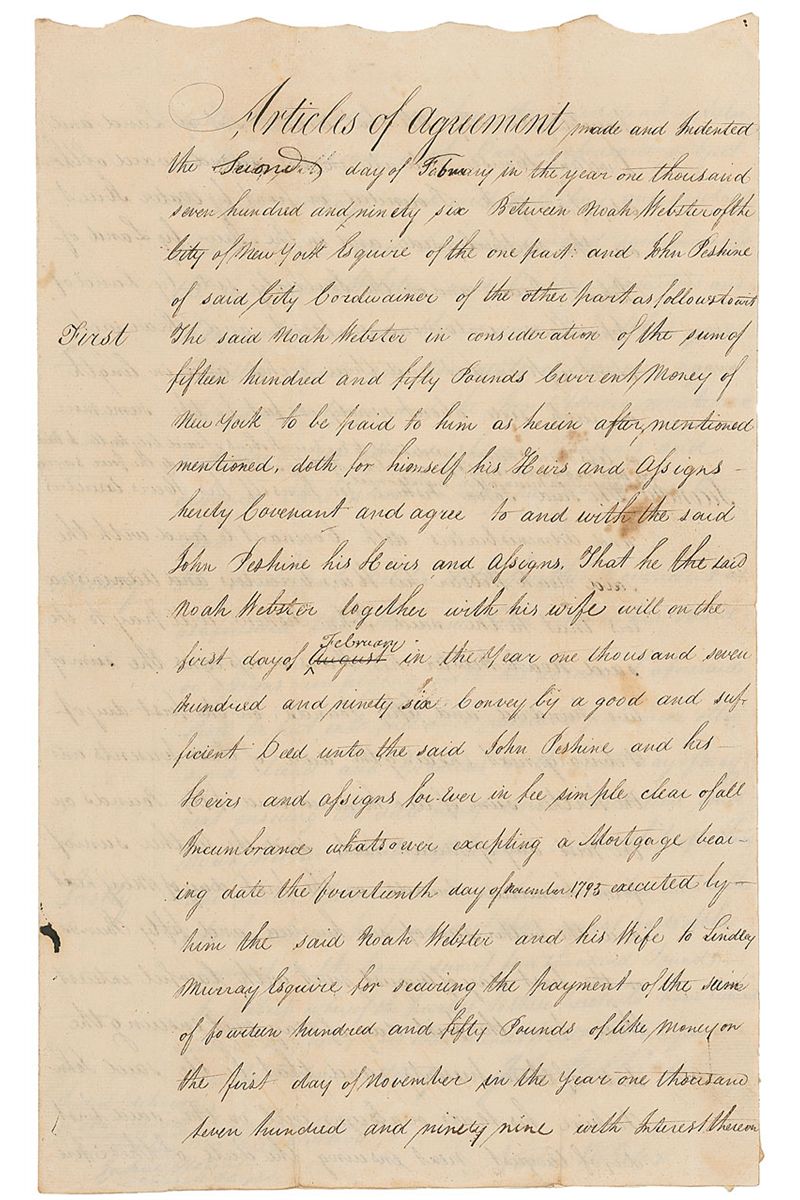 Articles of Agreement made and Indented
the Second day of February in the year one thousand
seven hundred and ninety six Between Noah Webster of the
City of New York Esquire of the one part: and John Peshine
of said City Cordwainer of the other part as follows to wit
First The said Noah Webster in consideration of the sum of
fifteen hundred and fifty Pounds Current Money of
New York to be paid to him as herein after mentioned
mentioned, doth for himself his Heirs and Assigns
hereby Covenant and agree to and with the said
John Peshine his Heirs and Assigns, That he the said
Noah Webster together with his wife will on the
February
first day of August in the Year one thousand seven
hundred and ninety six Convey by a good and suf-
ficient Deed unto the said John Peshine and his
Heirs and Assigns for-ever in fee simple clear of all
Incumbrance whatsoever excepting a Mortgage bear-
ing date the fourteenth day of November 1795 executed by
him the said Noah Webster and his Wife to Lindley
Murray Esquire for securing the payment of the sum
of fourteen hundred and fifty Pounds of like Money on
the first day of November in the Year one thousand
seven hundred and ninety nine with Interest thereon